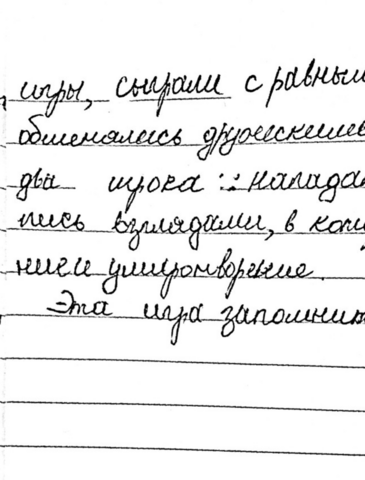 игры, сыграли с равным
обменялись дружескими
два игрока :: напада
лись взглядами, в кото
ние и умиротворение.
Эта игра запомнит